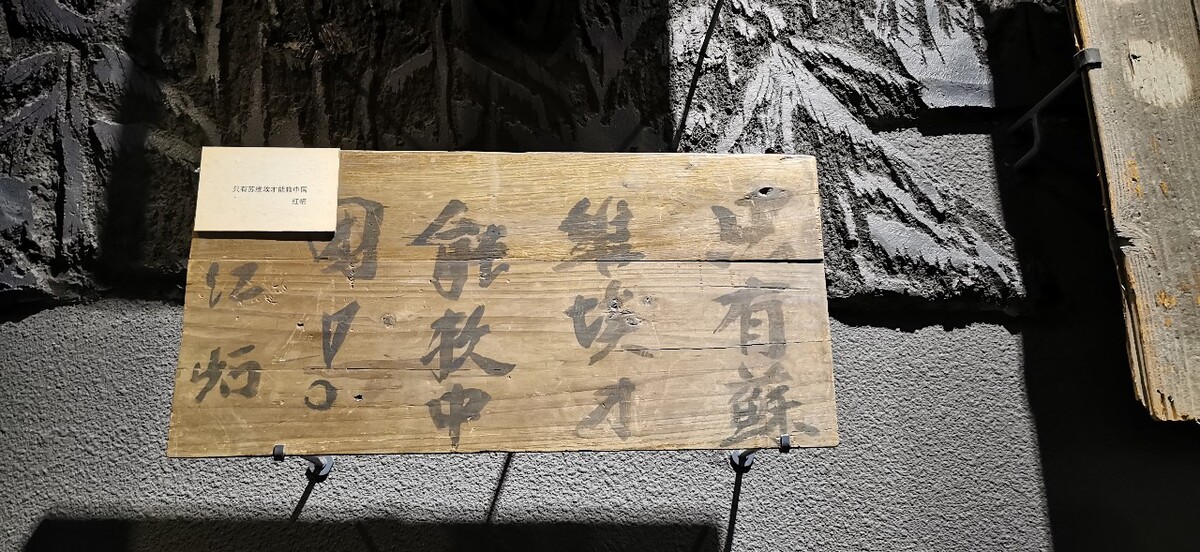 只有苏维埃才能救中国
只有蘇
維埃才
能救中
国!
红